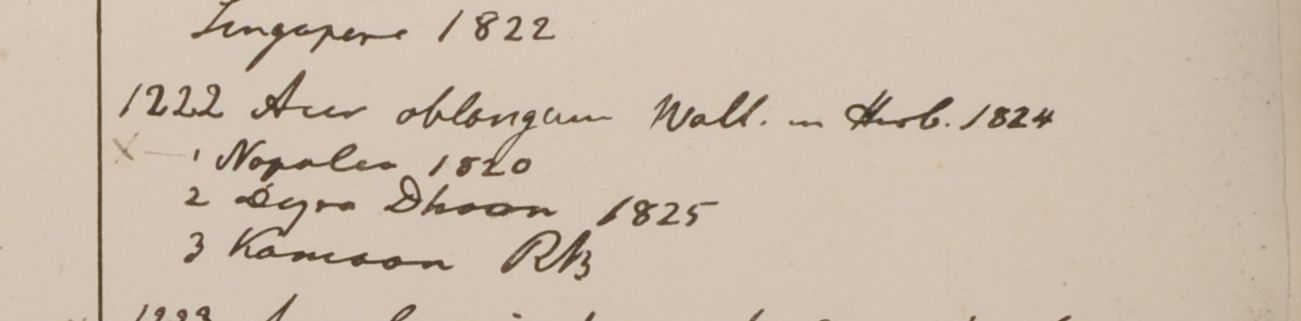 Singapore 1822
1222 Acer oblongum Wall. in Herb. 1824
1 Napalea 1820
2 Deyra Dhoon 1825
3 Kamaon RB
1223